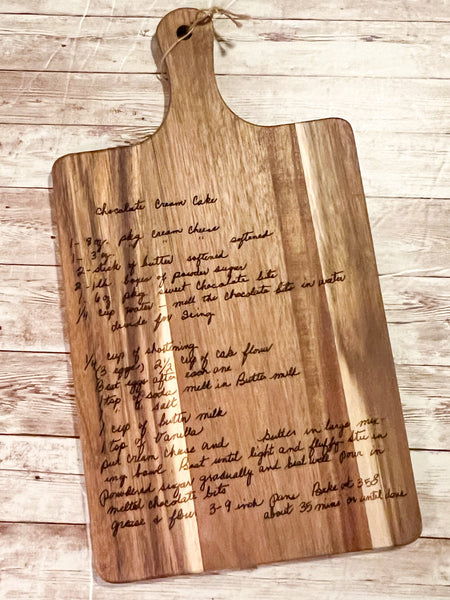 Chocolate Cream Cake
1 - 8 oz. pkg cream cheese
1 - 3 oz. " " " softened
2 - stick of butter softened
2 - 1lb. boxes of powder sugar
1 - 6 oz pkg sweet chocolate bits
1/4 cup water - melt the chocolate bits in water
divide for Icing
1/4 cup of shortning
(3 eggs) 2 1/4 cup of cake flour
Beat eggs after each one
1 tsp of soda melt in Butter milk
1 " salt
1 cup of butter milk
1 tsp of Vanilla
put cream cheese and butter in large mix-
ing bowl. Beat until light and fluffy stir in
powdered sugar gradually and beat well pour in
melted chocolate bits
grease & flour 3-9 inch pans Bake at 350
about 35 mins or until done